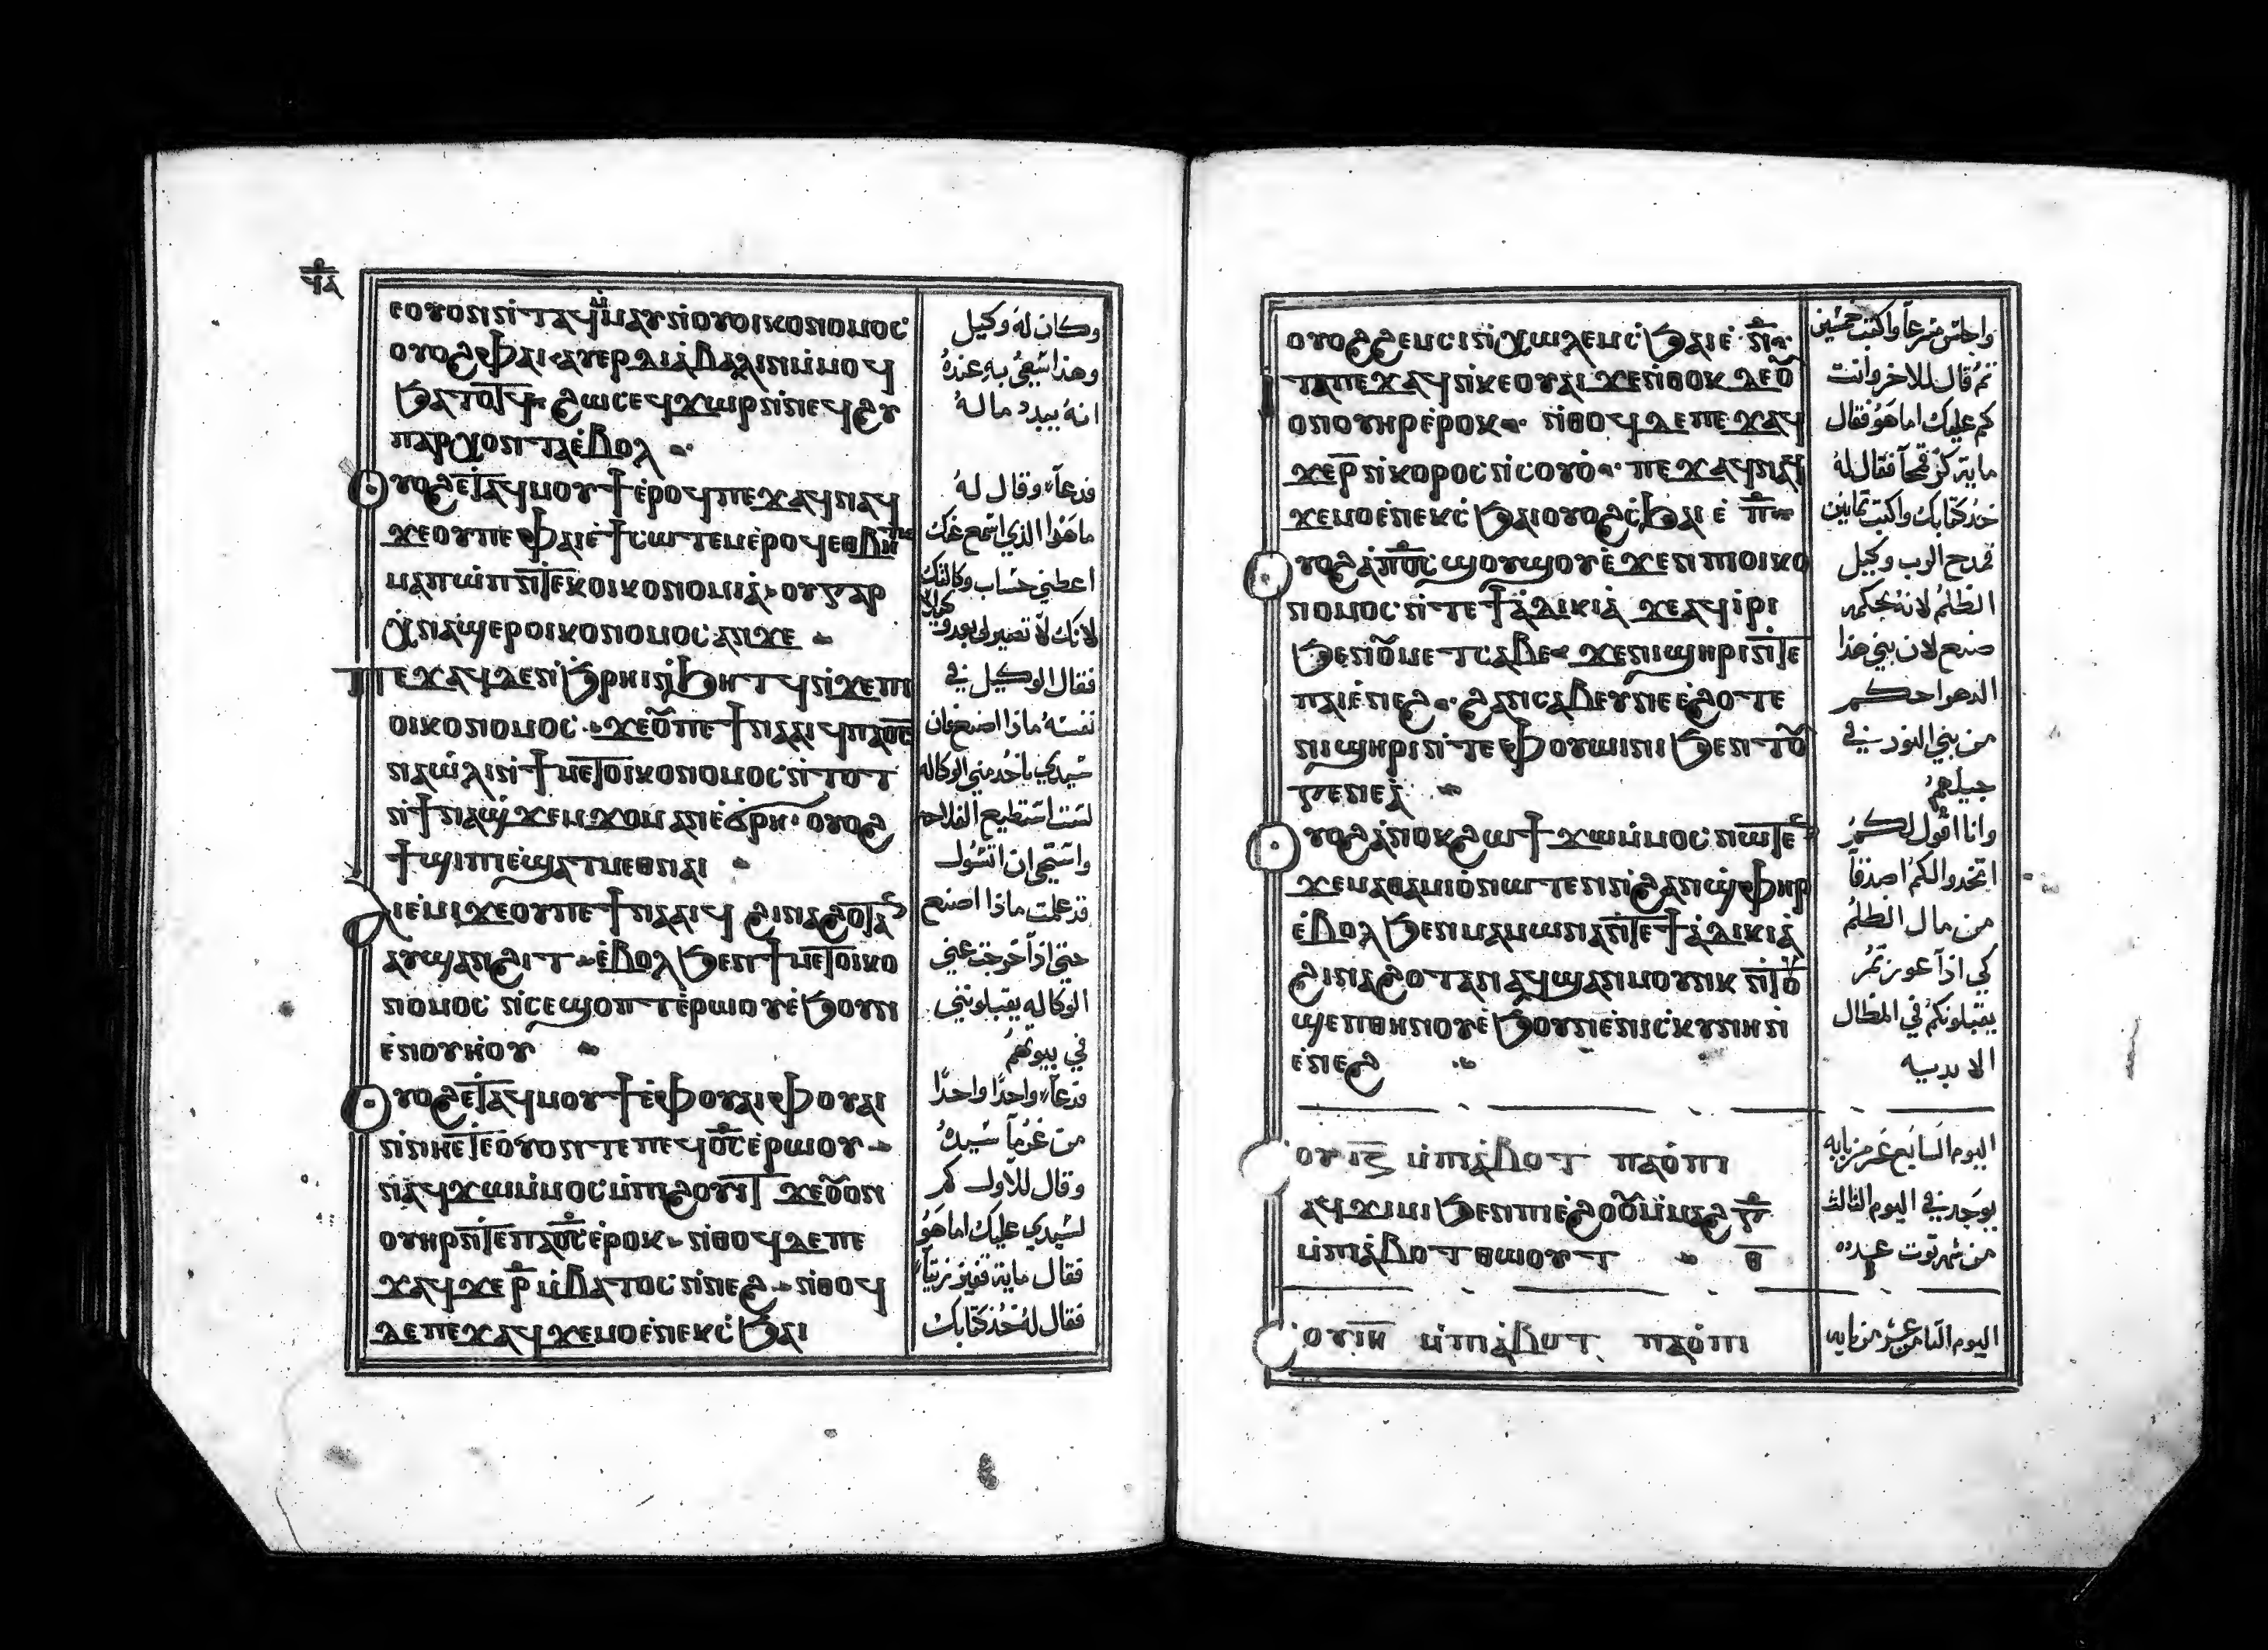 ϥⲁ
ⲉⲟⲩⲟⲛⲛ̇ⲧⲁϥⲙ̇ⲙⲁⲩⲛ̇ⲟⲩⲟⲓⲕⲟⲛⲟⲙⲟⲥ
ⲟⲩⲟϩⲫⲁⲓⲁⲩⲉⲣⲇⲓⲁ̇ⲃⲁⲗⲓⲛⲙ̇ⲙⲟϥ
ϧⲁⲧⲟⲧϥ ϩⲱⲥⲉϥϫⲱⲣⲛ̇ⲛⲉϥϩⲩ
ⲡⲁⲣⲭⲟⲛⲧⲁⲉ̇ⲃⲟⲗ
ⲟⲩⲟϩⲉⲧⲁϥⲙⲟⲩϯⲉ̇ⲣⲟϥⲡⲉϫⲁϥⲛⲁϥ
ϫⲉⲟⲩⲡⲉⲫⲁⲓⲉ̇ϯⲥⲱⲧⲉⲙⲉ̇ⲣⲟϥⲉⲑⲃⲏⲧⲕ
ⲙⲁⲡⲱⲡⲛ̇ⲧⲉⲕⲟⲓⲕⲟⲛⲟⲙⲓⲁ̇ ⲟⲩⲅⲁⲣ
ⲭ̇ⲛⲁϣⲉⲣⲟⲓⲕⲟⲛⲟⲙⲟⲥ ⲁⲛϫⲉ
ⲡⲉϫⲁϥⲇⲉⲛ̇ϧⲣⲏⲓⲛ̇ϧⲏⲧϥⲛ̇ϫⲉⲡⲓ
ⲟⲓⲕⲟⲛⲟⲙⲟⲥ ϫⲉⲟⲩⲡⲉϯⲛⲁⲁⲓϥⲡⲁϭⲥ
ⲛⲁⲱ̇ⲗⲓⲛ̇ϯⲙⲉⲧⲟⲓⲕⲟⲛⲟⲙⲟⲥ ⲛ̇ⲧⲟⲧ
ⲛ̇ϯⲛⲁϣϫⲉⲙϫⲟⲙ ⲁⲛⲉ̇ϭⲣⲏ ⲟⲩⲟϩ
ϯϣⲓⲡⲓⲉ̇ϣⲁⲧⲙⲉⲑⲛⲁⲓ
ⲁⲓⲉ̇ⲙⲓϫⲉⲟⲩⲡⲉϯⲛⲁⲁⲓϥ ϩⲓⲛⲁϩⲟⲧⲁⲛ
ⲁⲩϣⲁⲛϩⲓⲧ ⲉ̇ⲃⲟⲗϧⲉⲛϯⲙⲉⲧⲟⲓⲕⲟ
ⲛⲟⲙⲟⲥ ⲛ̇ⲥⲉϣⲟⲡⲧⲉ̇ⲣⲱⲟⲩⲉ̇ϧⲟⲩⲛ
ⲉ̇ⲛⲟⲩⲏⲟⲩ
ⲟⲩⲟϩⲉⲧⲁϥⲙⲟⲩϯⲉ̇ⲫⲟⲩⲁⲓⲫⲟⲩⲁⲓ
ⲛ̇ⲛⲏⲉⲧⲉⲟ̇ⲩⲟⲛⲧⲉⲡⲉϥϭⲥ ⲉ̇ⲣⲱⲟⲩ
ⲛⲁϥϫⲱⲙ̇ⲙⲟⲥ ⲙ̇ⲡⲓϩⲟⲩⲓⲧ ϫⲉⲟⲩⲟⲛ
ⲟⲩⲏⲣⲛ̇ⲧⲉⲡⲁϭⲥ ⲉ̇ⲣⲟⲕ ⲛ̇ⲑⲟϥⲇⲉⲡⲉ
ϫⲁϥϫⲉⲣ̅ ⲙ̇ⲃⲁⲧⲟⲥ ⲛ̇ⲛⲉϩ ⲛ̇ⲑⲟϥ
ⲇⲉⲡⲉϫⲁϥϫⲉⲙⲟⲉ̇ⲛⲉⲕⲥ̇ϧⲁⲓ
وكان له وكيل
وهذا سعي به عنده
انه يبدد ماله
فدعاه وقال له
ما هوا الذي اسمع عنك
اعطني حساب وكالتك
لانك لا تصير لي بعد وكيلا
فقال الوكيل في
نفسه ماذا اصنع فان
سيدي ياخد مني الوكاله
لست استطيع الفلاحه
واستحي ان اتسول
قد علمت ماذا اصنع
حتى اذا خرجت عني
الوكاله يقبلونني
في بيوتهم
فدعا واحدًا واحدًا
من غرما سيده
وقال للاول كم
لسيدي عليك اما هو
فقال مايه قفيز زيتا
فقال له خد كتابك
ⲟⲩⲟϩϩⲉⲙⲥⲓⲛ̇ⲭⲱⲗⲉⲙⲥ̇ϧⲁⲓⲉ̇ ⲛ̅
ⲓⲧⲁⲡⲉϫⲁϥⲛ̇ⲕⲉⲟⲩⲁⲓ ϫⲉⲛ̇ⲑⲟⲕ ⲇⲉⲟⲩ
ⲟⲛⲟⲩⲏⲣⲉ̇ⲣⲟⲕ ⲛ̇ⲑⲟϥⲇⲉⲡⲉϫⲁϥ
ϫⲉⲣ̅ ⲛ̇ⲕⲟⲣⲟⲥ ⲛ̇ⲥⲟⲩⲟ̇ ⲡⲉϫⲁϥⲛⲁϥ
ϫⲉⲙⲟⲉ̇ⲛⲉⲕⲥ̇ϧⲁⲓⲟⲩⲟϩⲥ̇ϧⲁⲓ ⲉ ⲡ̅
ⲟⲩⲟϩⲁ̇ⲡϭⲥ ϣⲟⲩϣⲟⲩⲉ̇ϫⲉⲛⲡⲓⲟⲓⲕⲟ
ⲛⲟⲙⲟⲥ ⲛ̇ⲧⲉϯⲁ̇ⲇⲓⲕⲓⲁ̇ ϫⲉⲁϥⲓ̇ⲣⲓ
ϧⲉⲛⲟⲩⲙⲉⲧⲥⲁⲃⲉ ϫⲉⲛⲓϣⲏⲣⲓⲛ̇ⲧⲉ
ⲡⲁⲓⲉ̇ⲛⲉϩ ϩⲁⲛⲥⲁⲃⲉⲩⲛⲉⲉ̇ϩⲟⲧⲉ
ⲛⲓϣⲏⲣⲓⲛ̇ⲧⲉⲫⲟⲩⲱⲓⲛⲓϧⲉⲛⲧⲟⲩ
ⲅⲉⲛⲉⲁ̇
ⲟⲩⲟϩⲁ̇ⲛⲟⲕϩⲱϯϫⲱⲙ̇ⲙⲟⲥ ⲛⲱⲧⲉⲛ
ϫⲉⲙⲁⲑⲁⲙⲓⲟ̇ⲛⲱⲧⲉⲛⲛ̇ϩⲁⲛϣ̇ⲫⲏⲣ
ⲉ̇ⲃⲟⲗϧⲉⲛⲙⲁⲙⲱⲛⲁⲛ̇ⲧⲉϯⲁ̇ⲇⲓⲕⲓⲁ̇
ϩⲓⲛⲁϩⲟⲧⲁⲛⲁϥϣⲁⲛⲙⲟⲩⲛⲕ ⲛ̇ⲧⲟⲩ
ϣⲉⲡⲑⲏⲛⲟⲩⲉ̇ϧⲟⲩⲛⲉ̇ⲛⲓⲥ̇ⲕⲩⲛⲏⲛ̇
ⲉ̇ⲛⲉϩ
ⲥⲟⲩⲓⲍ ⲙ̇ⲡⲓⲁ̇ⲃⲟⲧ ⲡⲁⲟ̇ⲡⲓ
ⲁϥϫⲓⲙⲓ ϧⲉⲛⲡⲓⲉ̇ϩⲟⲟⲩⲙ̇ⲙⲁϩ ⲅ̅
ⲙ̇ⲡⲓⲁ̇ⲃⲟⲧ ⲑⲱⲟⲩⲧ ⲑ̅
ⲥⲟⲩⲓⲏ ⲙ̇ⲡⲓⲁ̇ⲃⲟⲧ ⲡⲁⲟ̇ⲡⲓ
واجلس مسرعا واكتب خمسين
ثم قال للاخر وانت
كم عليك اما هو فقال
مايه كر قمحا فقال له
خد كتابك واكتب تمانين
فمدح الرب وكيل
الظلم لانه بحكمه
صنع لان بني هذا
الدهر احكم
من بني النور في
جيلهم
وانا اقول لكم
اتخدوا لكم اصدقا
من مال الظلم
كي اذا عوزتم
يقبلونكم في المظال
الابديه
اليوم السابع عشر من بابه
يوجد في اليوم الثالث
من شهر توت عيده
اليوم الثامن عشر من بابه